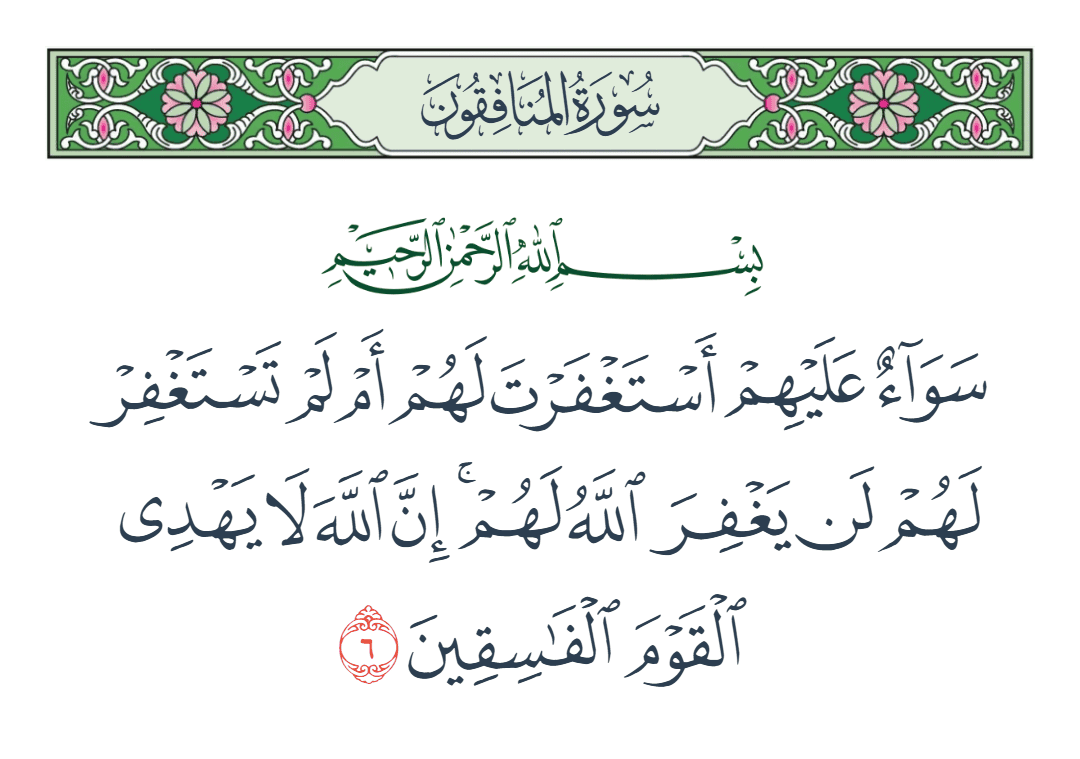 سُورَةُ المُنَافِقُونَ
بِسْمِ ٱللَّهِ ٱلرَّحْمَٰنِ ٱلرَّحِيمِ
سَوَآءٌ عَلَيْهِمْ أَسْتَغْفَرْتَ لَهُمْ أَمْ لَمْ تَسْتَغْفِرْ
لَهُمْ لَن يَغْفِرَ ٱللَّهُ لَهُمْ ۚ إِنَّ ٱللَّهَ لَا يَهْدِى
ٱلْقَوْمَ ٱلْفَٰسِقِينَ ٦